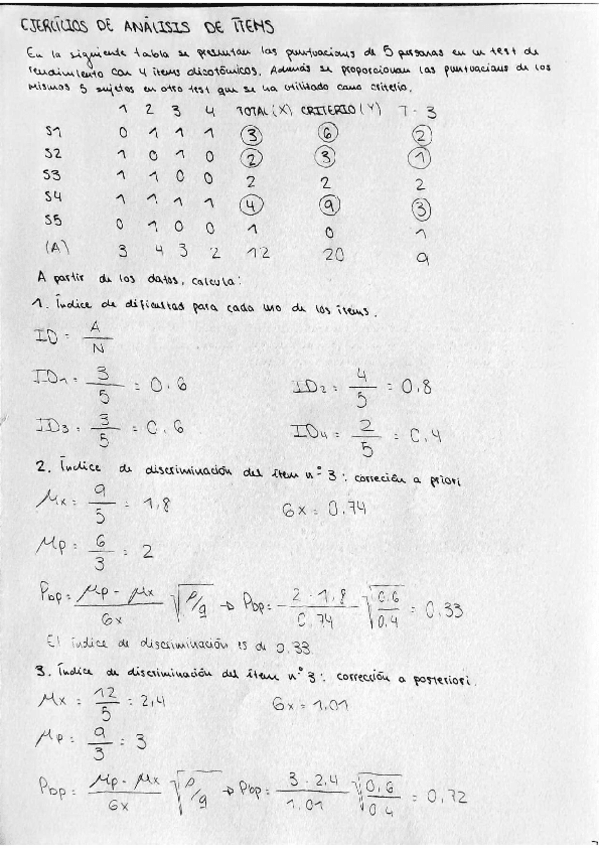 EJERCICIOS DE ANÁLISIS DE ÍTEMS
En la siguiente tabla se presentan las puntuaciones de 5 personas en un test de
rendimiento con 4 ítems dicotómicos. Además se proporcionan las puntuaciones de los
mismos 5 sujetos en otro test que se ha utilizado como criterio.
1 2 3 4 TOTAL (X) CRITERIO (Y) T - 3
S1 0 1 1 1 3 6 2
S2 1 0 1 0 2 3 1
S3 1 1 0 0 2 2 2
S4 1 1 1 1 4 9 3
S5 0 1 0 0 1 0 1
(A) 3 4 3 2 12 20 9
A partir de los datos, calcula:
1. Índice de dificultad para cada uno de los ítems.
ID = A/N
ID1 = 3/5 = 0.6 ID2 = 4/5 = 0,8
ID3 = 3/5 = 0,6 ID4 = 2/5 = 0,4
2. Índice de discriminación del ítem nº 3: correción a priori
μx = 9/5 = 1,8 σx = 0.74
μp = 6/3 = 2
ρbp = μp - μx / σx √p/q → ρbp = 2 - 1,8 / 0.74 √0.6/0.4 = 0.33
El índice de discriminación es de 0.33
3. Índice de discriminación del ítem nº 3: corrección a posteriori.
μx = 12/5 = 2,4 σx = 1.01
μp = 9/3 = 3
ρbp = μp - μx / σx √p/q → ρbp = 3 - 2,4 / 1.01 √0,6/0.4 = 0,72